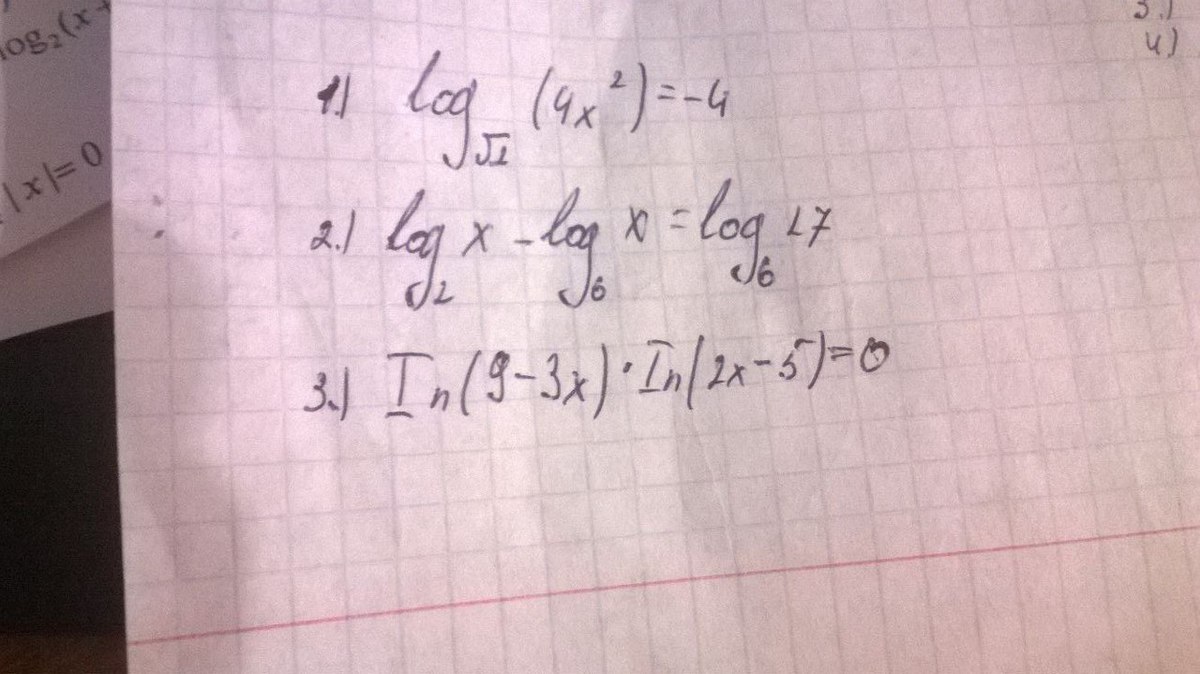 log₂(x+
|x|=0
3.)
4)
1.) log_√2 (4x²)=-4
2.) log₂ x - log₆ x = log₆ 27
3.) In(9-3x)·In(2x-5)=0